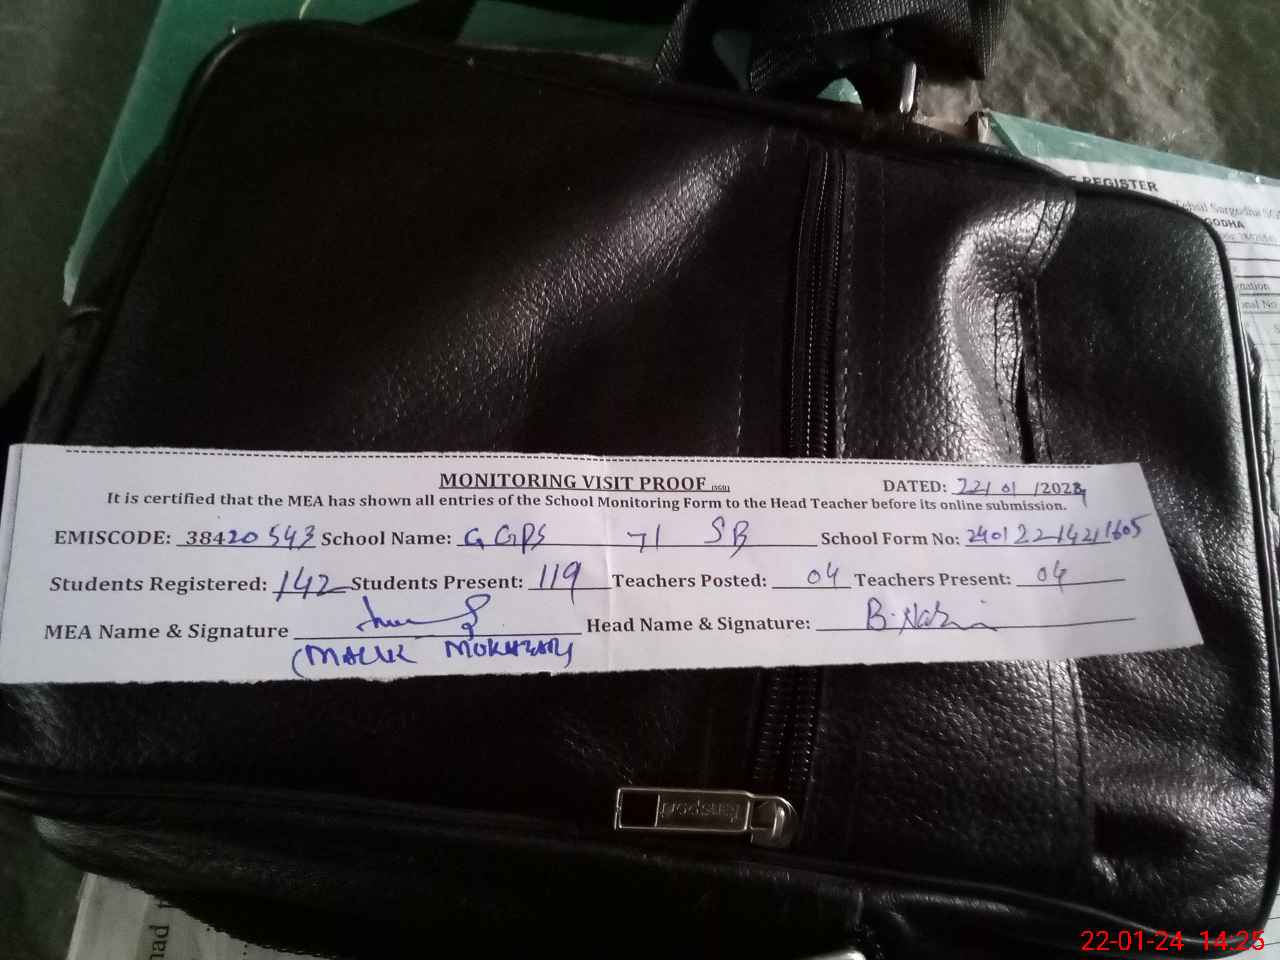 REGISTER
Tehsil Sargodha
GODHA
MONITORING VISIT PROOF (SGD)
DATED: 22/01/2024
It is certified that the MEA has shown all entries of the School Monitoring Form to the Head Teacher before its online submission.
EMISCODE: 38420543 School Name: GGPS 71 SB School Form No:
Students Registered: 142 Students Present: 119 Teachers Posted: 04 Teachers Present: 04
MEA Name & Signature Head Name & Signature:
(MALIK
22-01-24 14:25